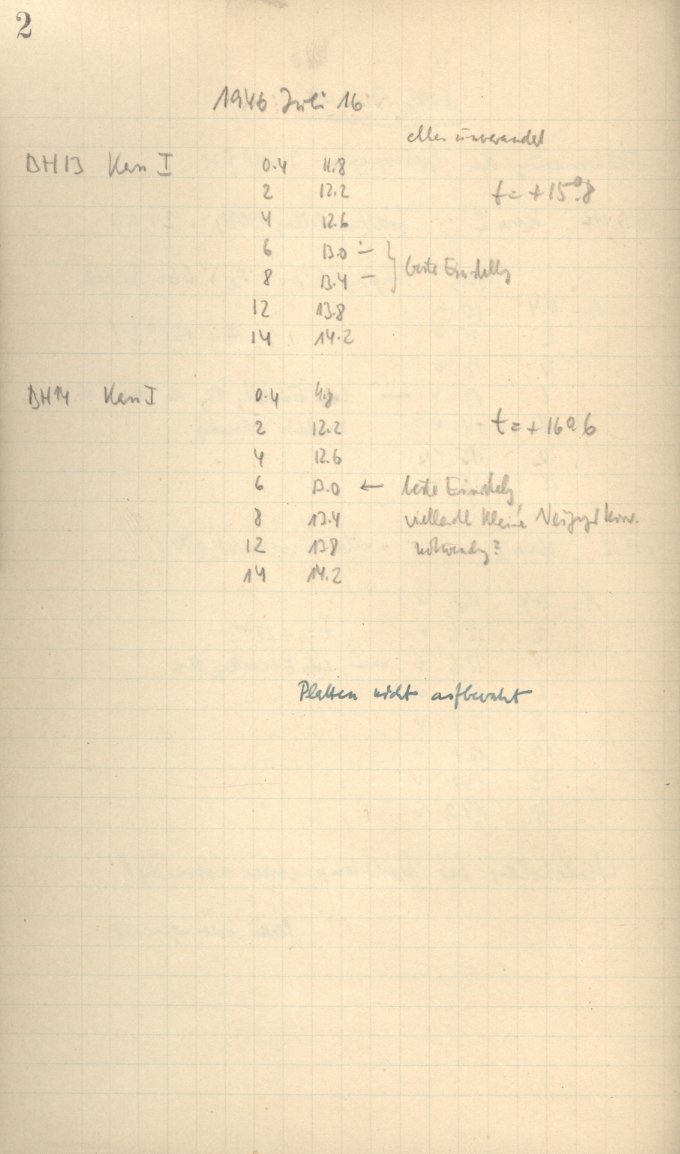 2
1946 Juli 16
alles unverändert
BH13 Kassn I 0.4 11.8
2 12.2 t = +15°.8
4 12.6
6 13.0 –
8 13.4 – } beste Einstellg
12 13.8
14 14.2
BH14 I 0.4 11.8
2 12.2 t = +16°.6
4 12.6
6 13.0 ← beste Einstellg
8 13.4 vielleicht kleine
12 13.8 notwendig?
14 14.2
Platten nicht aufbewahrt